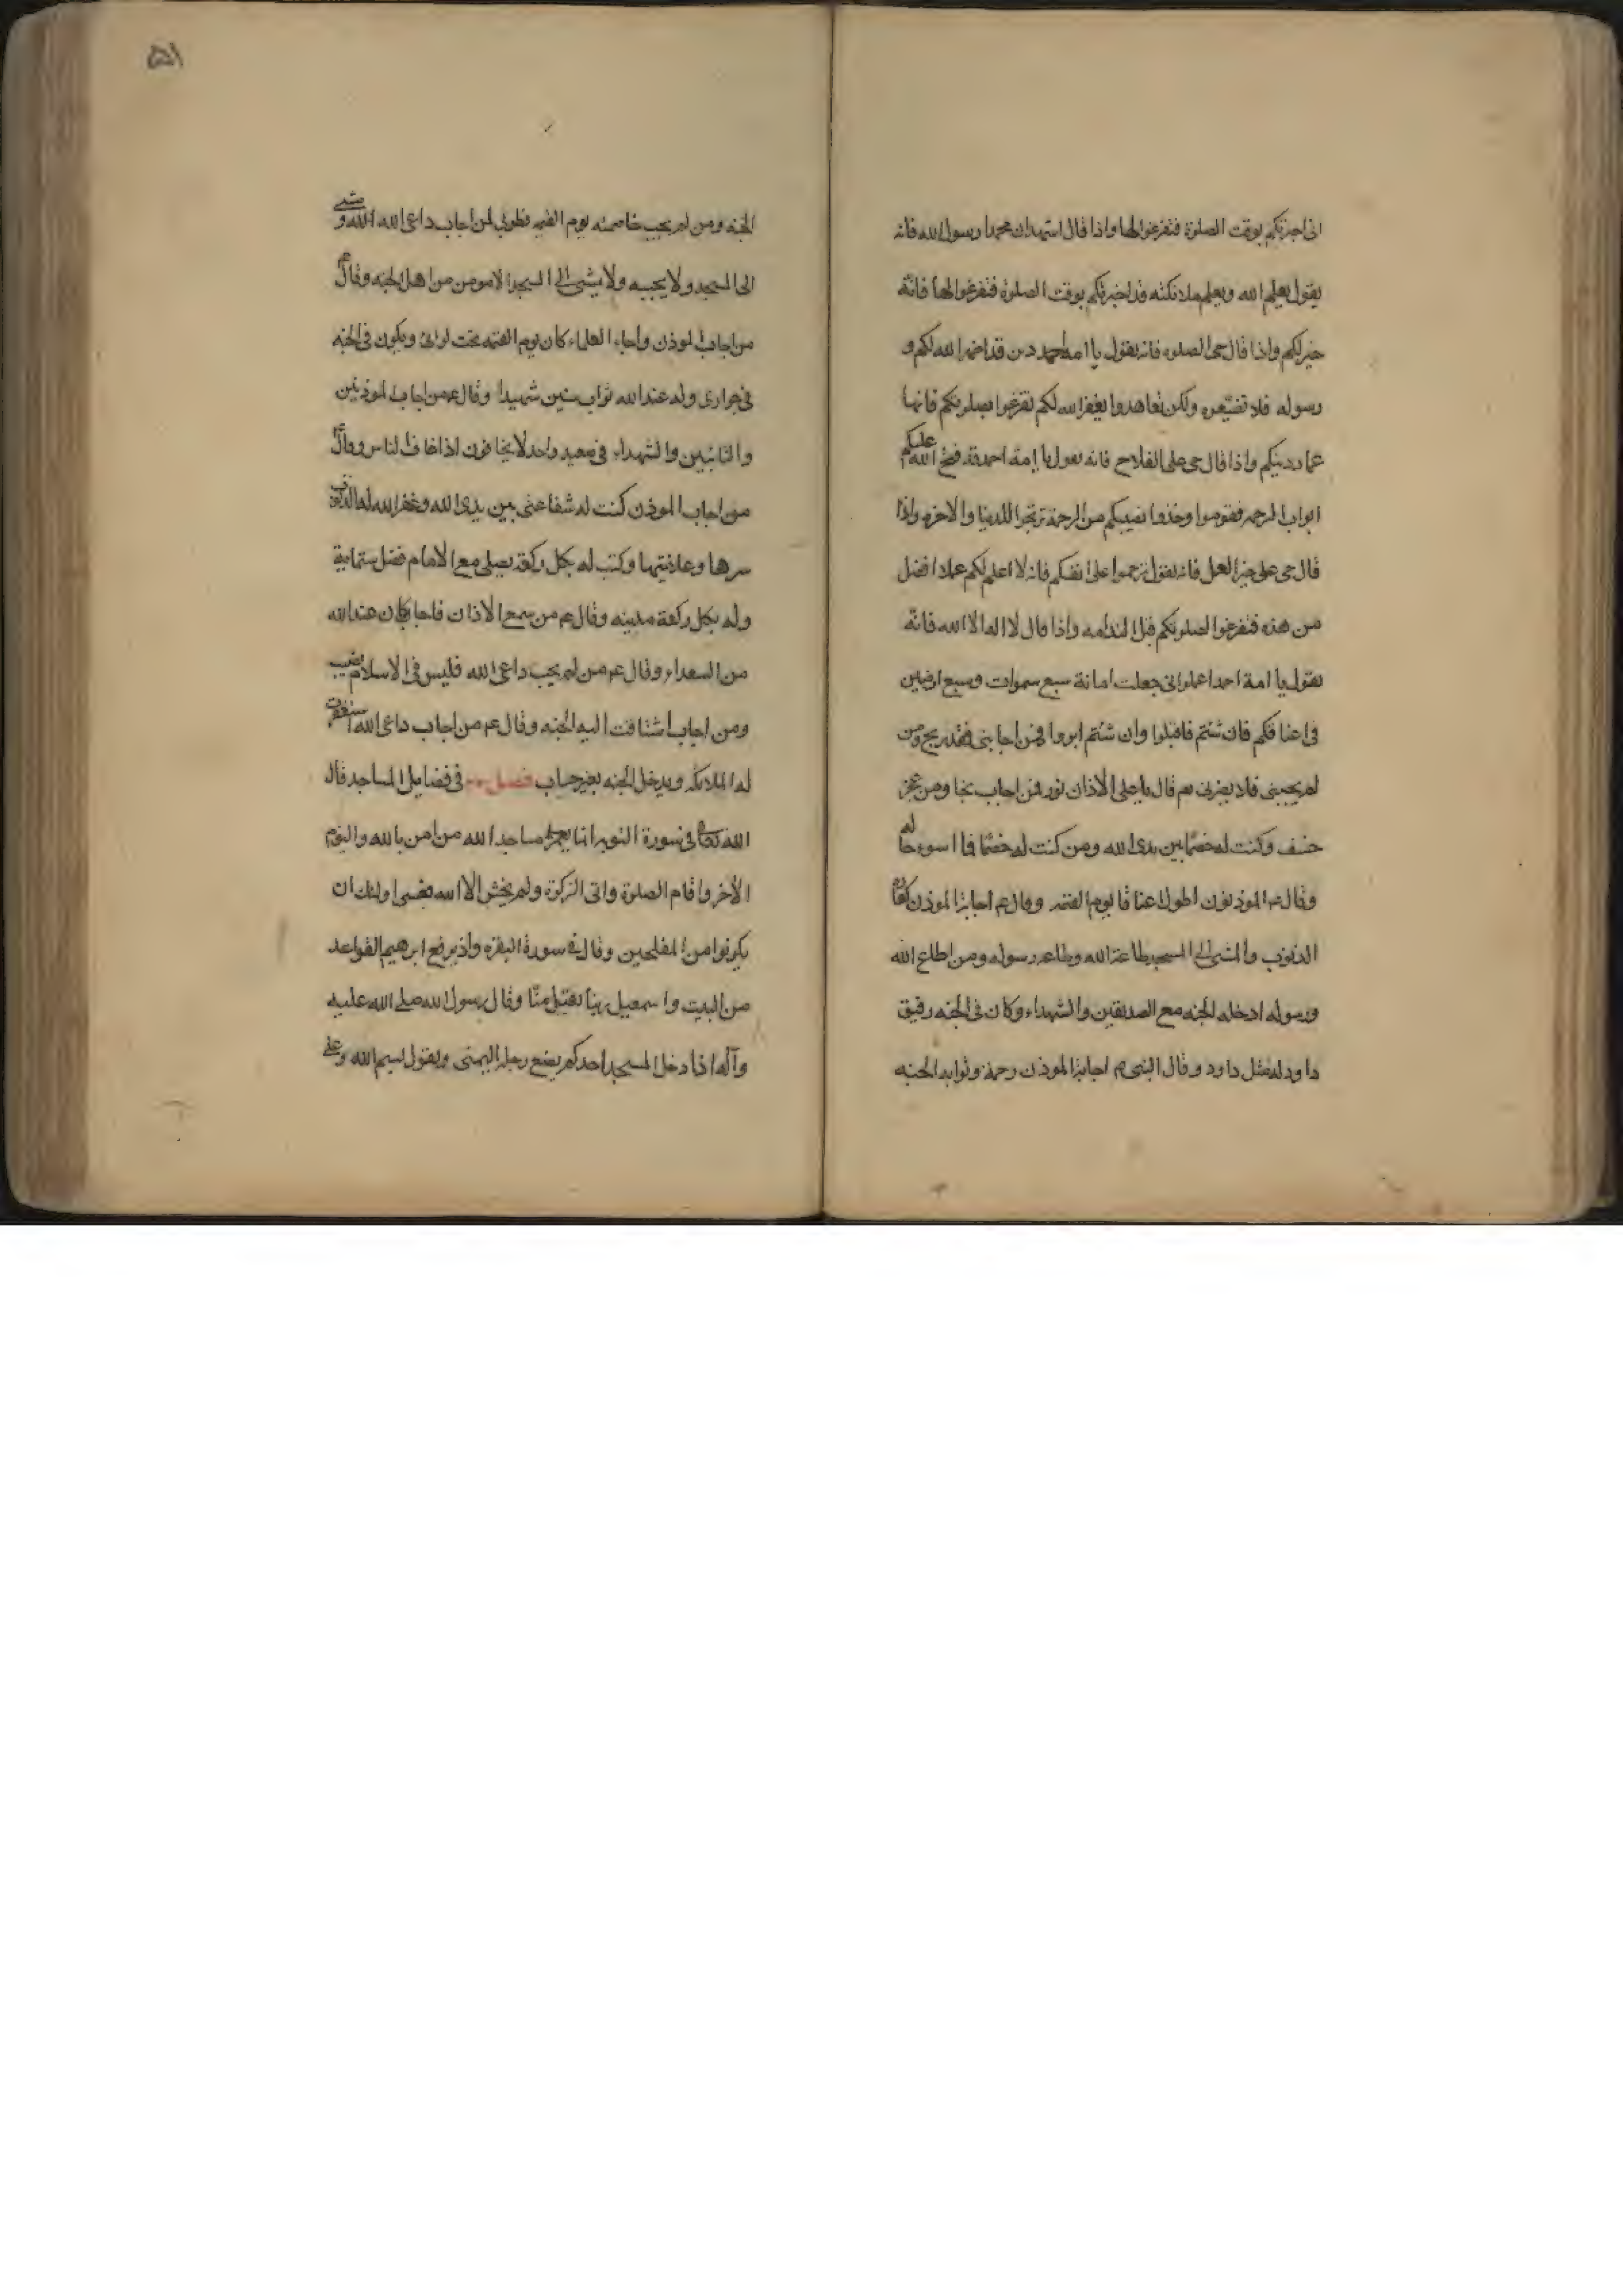 انى اخبرتكم بوقت الصلوة فتفرغوا لها واذا قال اشهد ان محمدا رسول الله فانه
يقول يعلم الله ويعلم ملائكته قد اخبرتكم بوقت الصلوة فتفرغوا لها فانه
خير لكم واذا قال حى الصلوه فانه يقول يا امة احمد دين قد اظهر الله لكم و
رسوله فلا تضيّعوه ولكن تعاهدوا يغفر الله لكم تفرغوا لصلوتكم فانها
عماد دينكم واذا قال حى على الفلاح فانه يقول يا امة احمد قد فتح الله عليكم
ابواب الرحمه فقوموا وخذوا نصيبكم من الرحمة تربحوا للدنيا والاخره واذا
قال حى على خير العمل فانه يقول ترحموا على انفسكم فانه لا اعلم لكم عملا افضل
من هذه فتفرغوا لصلوتكم قبل الندامه واذا قال لا اله الا الله فانه
يقول يا امة احمد اعلموا انى جعلت امانة سبع سموات وسبع ارضين
فى اعناقكم فان شئتم فاقبلوا وان شئتم ادبروا فمن اجابنى فقد ربح ومن
لم يجبنى فلا يضرنى ثم قال يا على الاذان نور فمن اجاب نجا ومن عجز
خسف وكنت له خصمًا بين يدى الله ومن كنت له خصمًا فما اسوء حاله
وقال عم الموذنون اطول اعناقا يوم القيمه وقال عم اجابة الموذن كفارة
الذنوب والمشى الى المسجد طاعة الله وطاعه رسوله ومن اطاع الله
ورسوله ادخله الجنه مع الصديقين والشهداء وكان فى الجنه رفيق
داود له مثل داود وقال النبى م اجابة الموذن رحمة وثوابه الجنه
الجنه ومن لم يجب خاصمته يوم القيمه فطوبى لمن اجاب داعى الله ومشى
الى المسجد ولا يجيبه ولا يمشى الى المسجد الا مومن من اهل الجنه وقال عم
من اجاب الموذن واجاب العلماء كان يوم القيمه تحت لوائى ويكون فى الجنه
فى جوارى وله عند الله ثواب ستين شهيدا وقال عم من اجاب الموذنين
والتائبين والشهداء فى صعيد واحد لا يخافون اذا خاف الناس وقال عم
من اجاب الموذن كنت له شفاعتى بين يدى الله وغفر الله له الذنوب
سرها وعلانيتها وكتب له بكل ركعة يصلى مع الامام فضل ستماية
وله بكل ركعة مدينه وقال عم من سمع الاذان فاجاب كان عند الله
من السعداء وقال عم من لم يجب داعى الله فليس فى الاسلام نصيب
ومن اجاب اشتاقت اليه الجنه وقال عم من اجاب داعى الله استغفرت
له الملائكه ويدخل الجنه بغير حساب فصل فى فضايل المساجد قال
الله تعالى فى سورة التوبه انما يعمر مساجد الله من امن بالله واليوم
الأخر واقام الصلوة واتى الزكوة ولم يخش الا الله فعسى اولئك ان
يكونوا من المفلحين وقال فى سورة البقره واذ يرفع ابرهيم القواعد
من البيت واسمعيل ربنا تقبل منّا وقال رسول الله صلى الله عليه
وآله اذا دخل المسجد احدكم يضع رجله اليمنى ويقول بسم الله وعلى